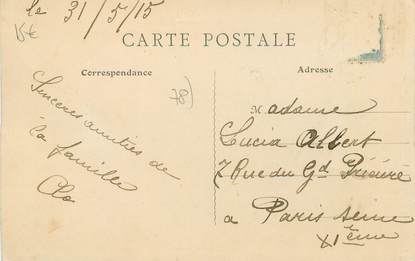 le 31/5/15
15€
CARTE POSTALE
Correspondance
Adresse
78)
Sincères amitiés de
la famille
Clo
Madame
Lucia Albert
7 Rue du Gd Prieuré
a Paris Seine
XIème